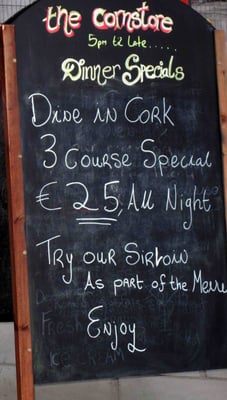 the Cornstore
5pm t2 Late.....
Dinner Specials
Dine in Cork
3 Course Special
€25, All Night
Try our Sirloin
As part of the Menu
Enjoy
Fresh
ICE CREAM